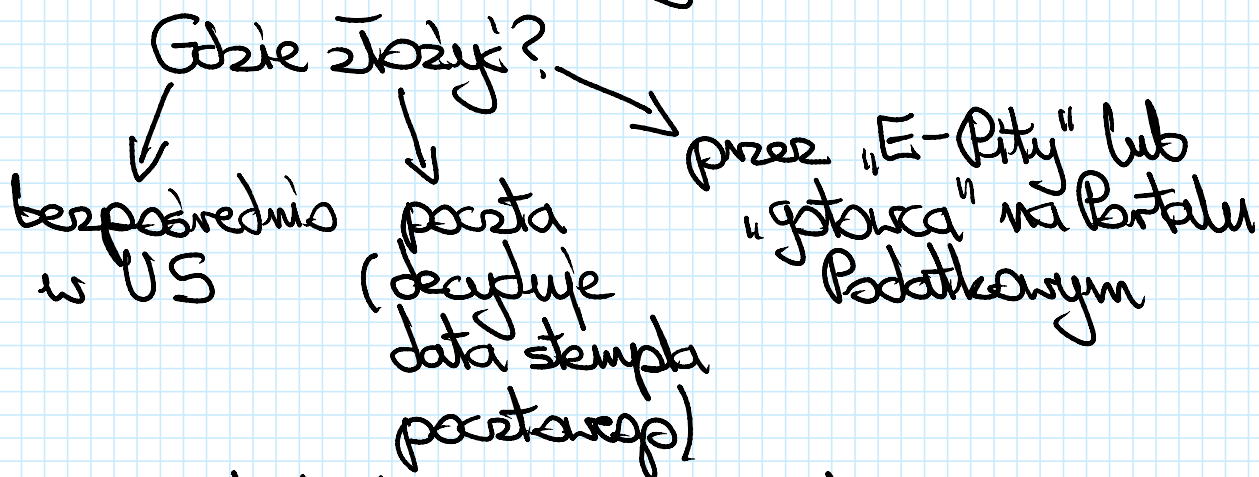 Gdzie złożyć?
bezpośrednio
w US
poczta
(decyduje
data stempla
pocztowego)
przez „E-Pity” lub
„gotowca” na Portalu
Podatkowym